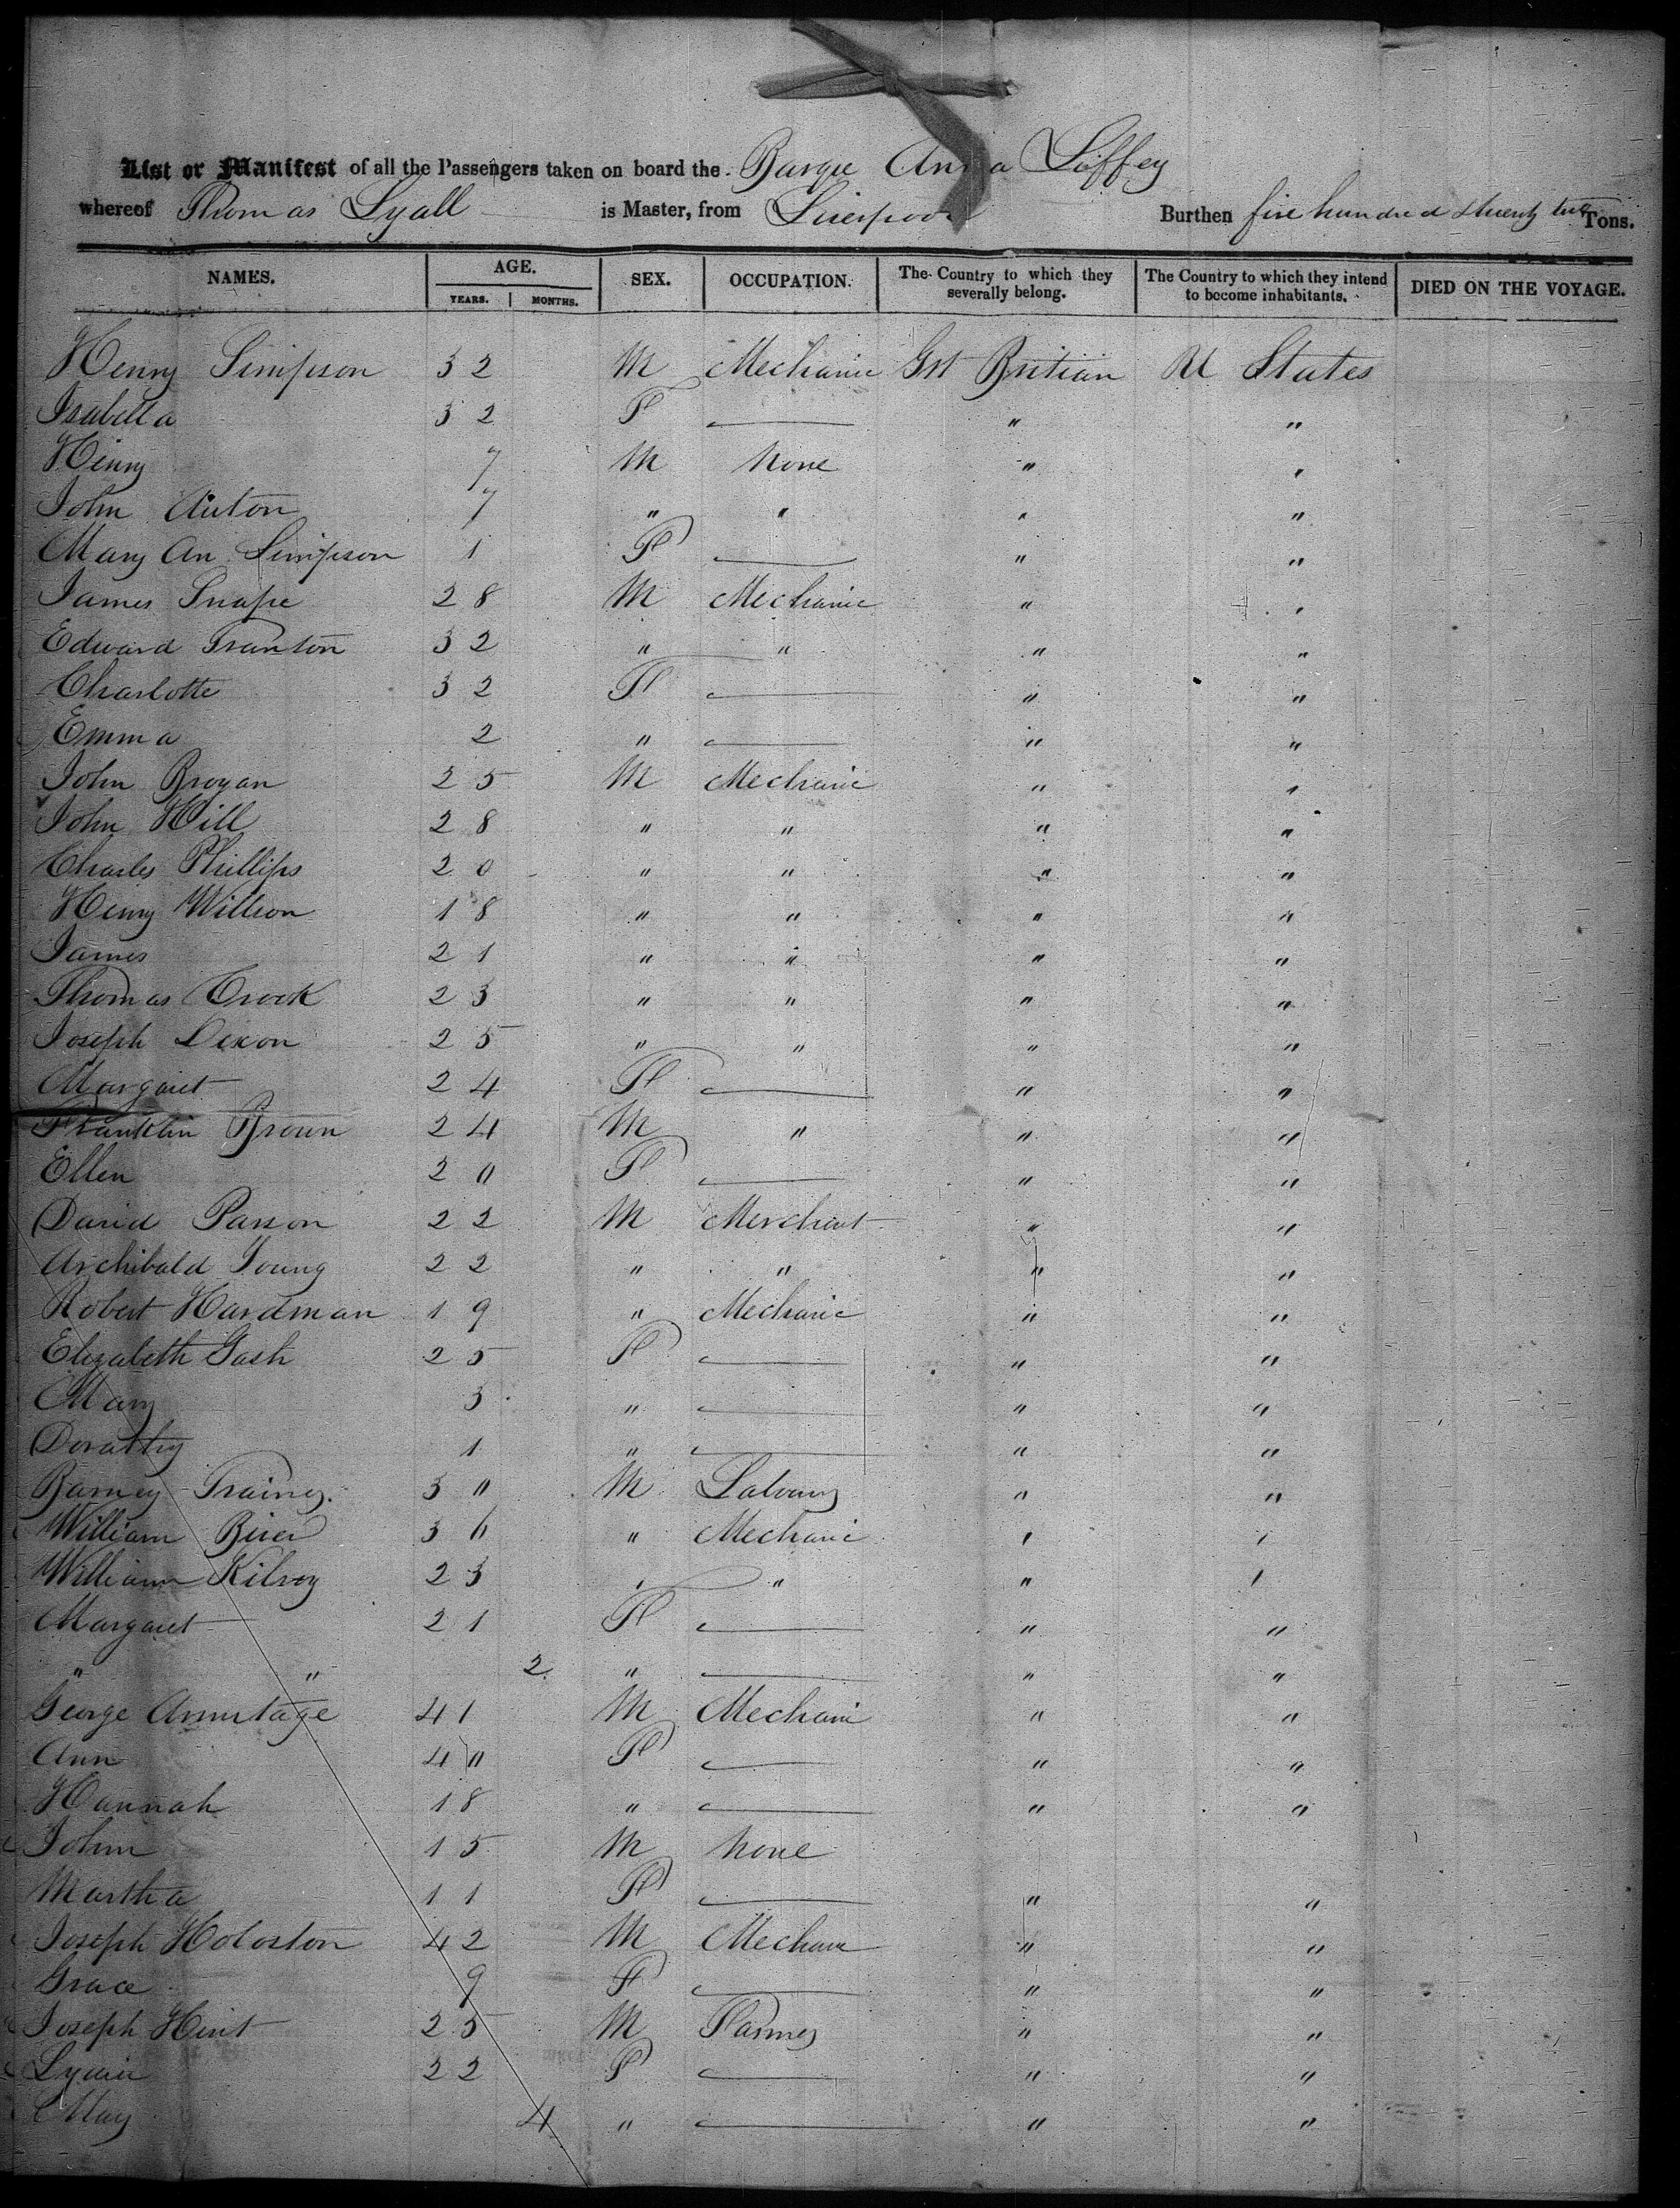 List or Manifest of all the Passengers taken on board the Barque Anna Liffey
whereof Thomas Lyall is Master, from Liverpool Burthen five hundred & twenty two Tons.
NAMES. AGE. YEARS. MONTHS. SEX. OCCUPATION. The Country to which they severally belong. The Country to which they intend to become inhabitants. DIED ON THE VOYAGE.
Henry Simpson 32 M Mechanic Grt Britian U States
Isabella 32 F — " "
Henry 7 M None " "
John Auton 7 " " " "
Mary An Simpson 1 F — " "
James Snape 28 M Mechanic " "
Edward Tranton 32 " " " "
Charlotte 32 F — " "
Emma 2 " — " "
John Brogan 25 M Mechanic " "
John Hill 28 " " " "
Charles Phillips 20 " " " "
Henry Willson 18 " " " "
James 21 " " " "
Thomas Crook 23 " " " "
Joseph Dixon 25 " " " "
Margaret 24 F — " "
Franklin Brown 24 M " " "
Ellen 20 F — " "
David Parson 22 M Merchant " "
Archibald Young 22 " " " "
Robert Hardman 19 " Mechanic " "
Elizabeth Gash 25 F — " "
Mary 3 " — " "
Dorathy 1 " — " "
Barney Trainer 30 M " "
William 36 " Mechanic " "
William Kilroy 23 " " " "
Margaret 21 F — " "
" " 2 " — " "
George Armitage 41 M Mechanic " "
Ann 40 F — " "
Hannah 18 " — " "
John 15 M None
Martha 11 F — " "
Joseph 42 M Mechanic " "
Grace 9 F — " "
Joseph 25 M Farmer " "
22 F — " "
May 4 " — " "